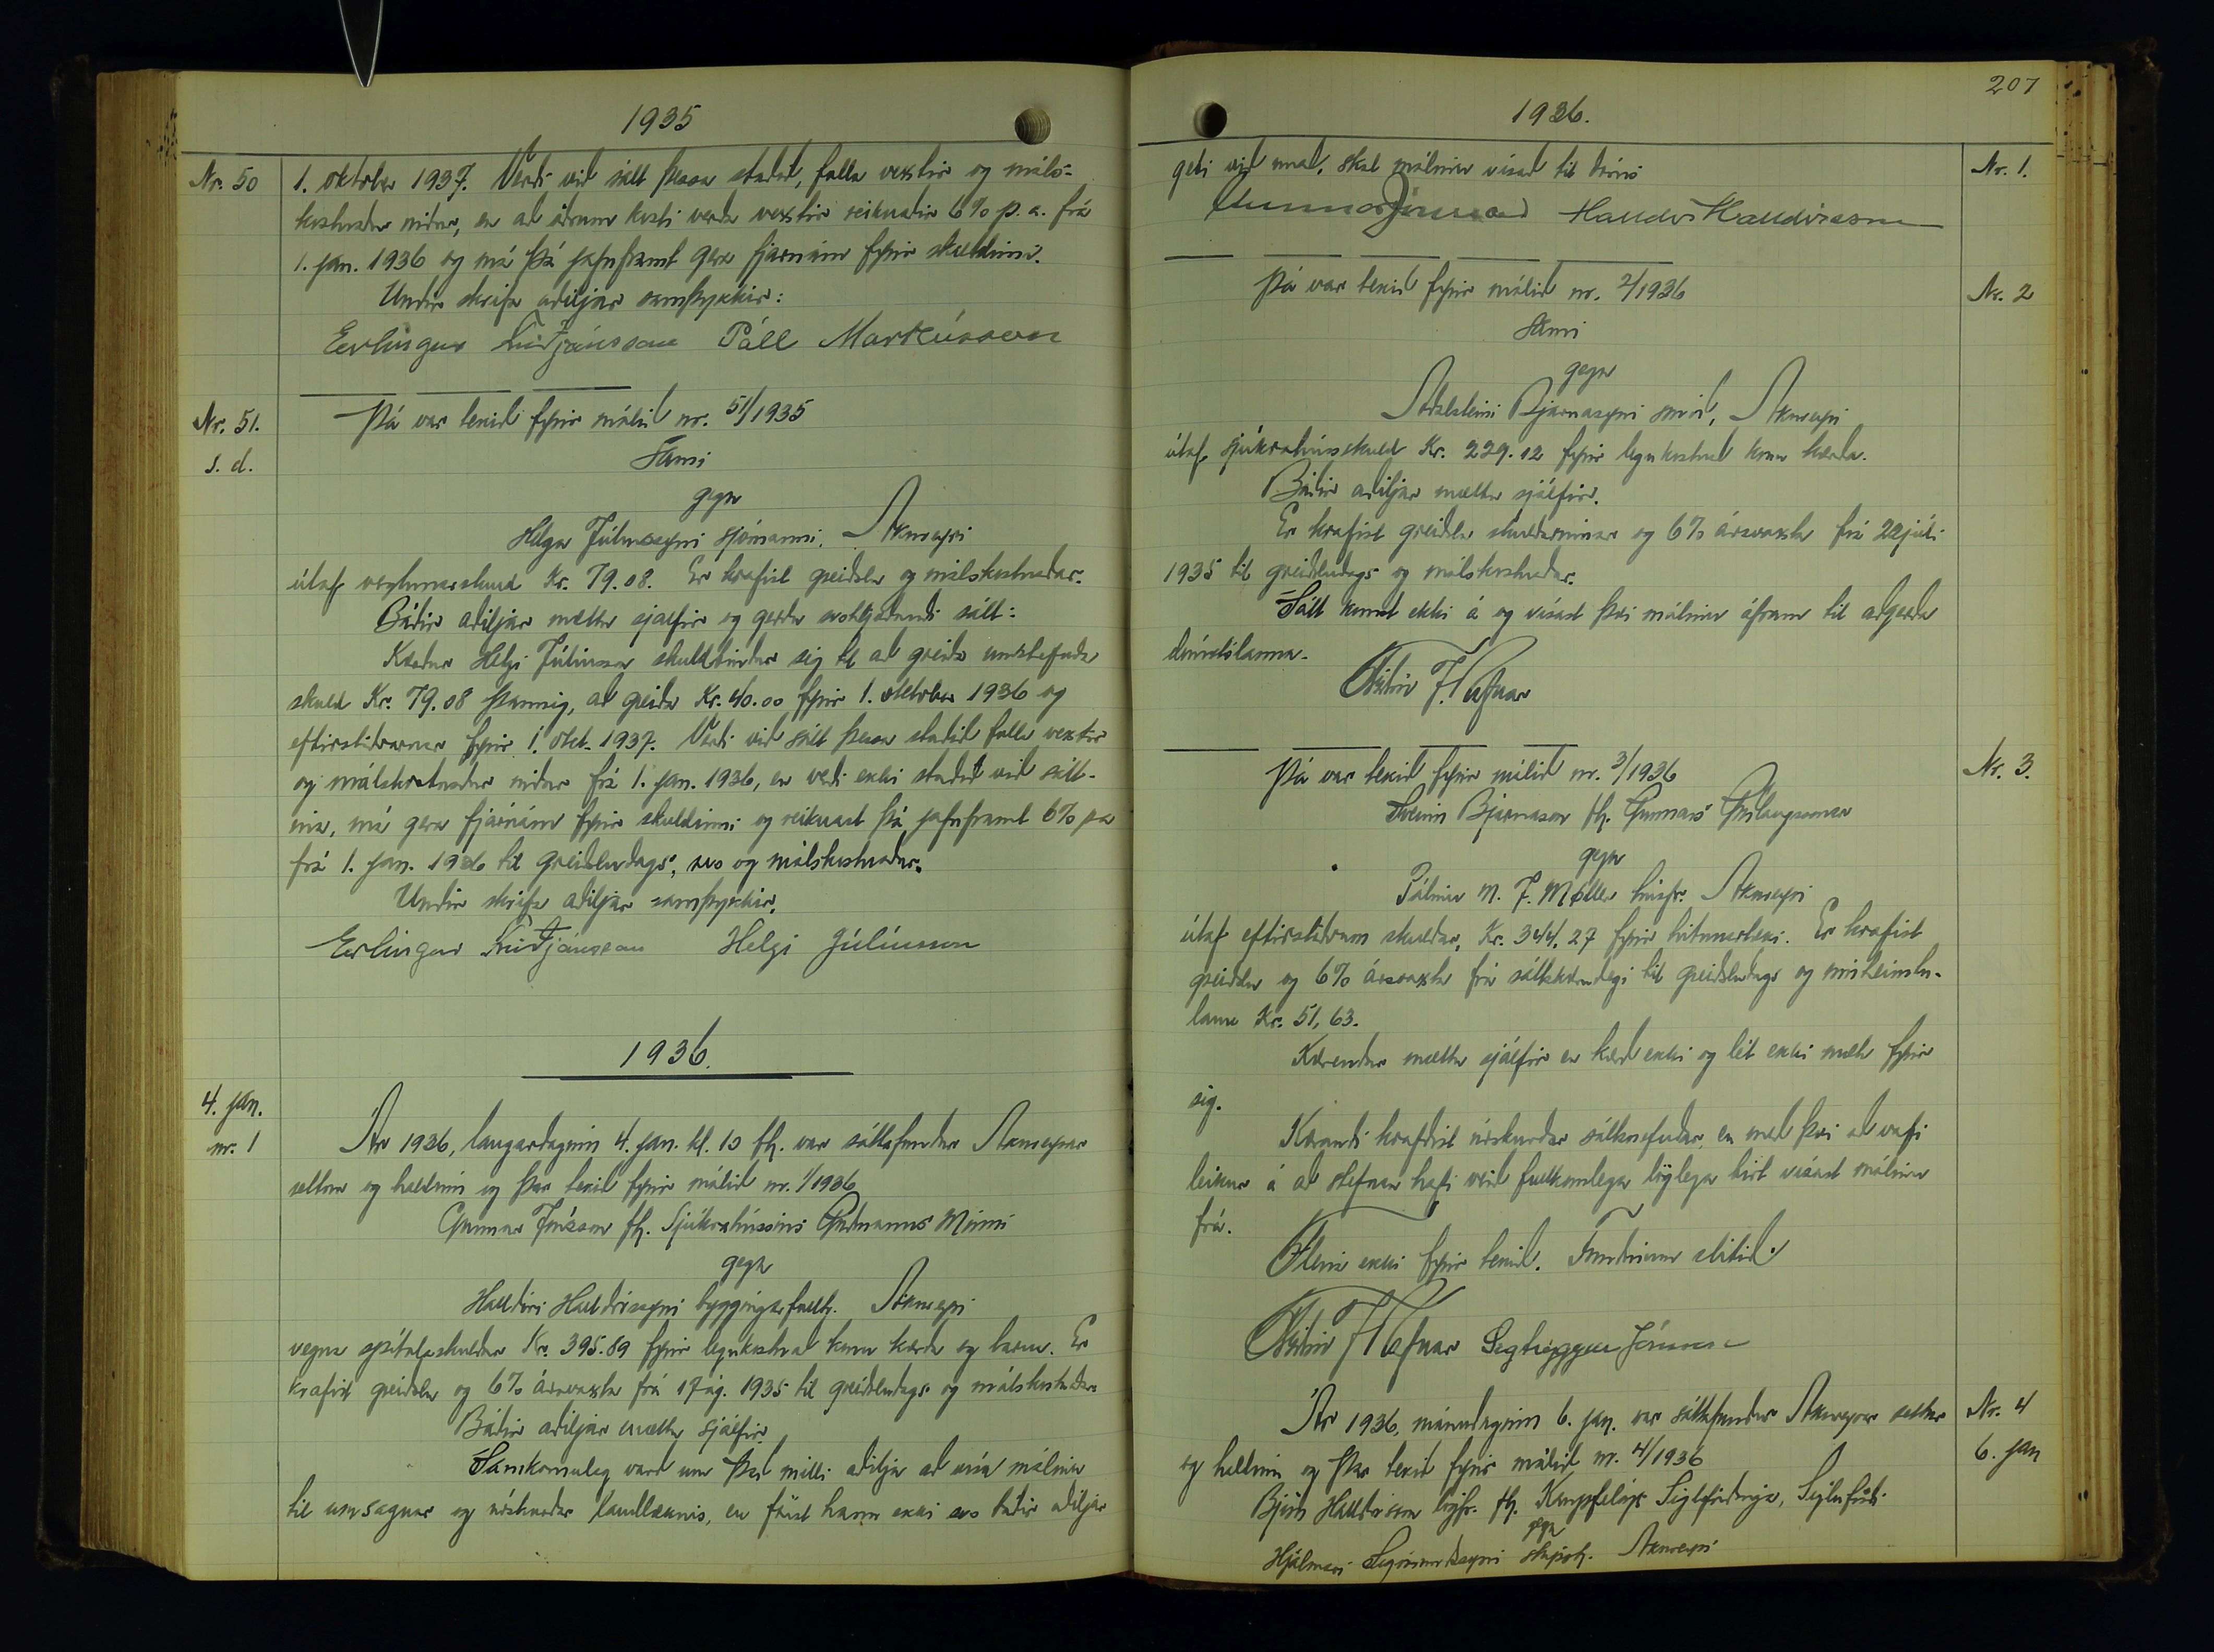 1935
Nr. 50
1. október 1937. Verði við sátt þessa staðið, falla vextir og máls-
kostnaður niður, en að öðrum kosti verða vextir reiknaðir 6% p.a. frá
1. jan. 1936 og má þá jafnframt gera fjárnám fyrir skuldinni.
Undir skrifa aðiljar samþykkir:
Erlingur Friðjónsson Páll Markússon
Nr. 51.
s. d.
Þá var tekið fyrir málið nr. 51/1935
Sami
gegn
Helga Júlíussyni sjómanni, Akureyri
útaf verzlunarskuld Kr. 79.08. Er krafist greiðslu og málskostnaðar.
Báðir aðiljar mættu sjálfir og gerðu svohljóðandi sátt:
Kærður Helgi Júlíusson skuldbindur sig til að greiða umstefnda
skuld Kr. 79.08 þannig, að greiða Kr. 40.00 fyrir 1. október 1936 og
eftirstöðvarnar fyrir 1. okt. 1937. Verði við sátt þessa staðið falla vextir
og málskostnaður niður frá 1. jan. 1936, en verði ekki staðið við sátt-
ina, má gera fjárnám fyrir skuldinni og reiknast þá jafnframt 6% pa
frá 1. jan. 1936 til greiðsludags, svo og málskostnaður.
Undir skrifa aðiljar samþykkir.
Erlingur Friðjónsson Helgi Júlíusson
1936.
4. jan.
nr. 1
Ár 1936, laugardaginn 4. jan. kl. 10 fh. var sáttafundur Akureyrar
settur og haldinn og þar tekið fyrir málið nr. 1/1936
Gunnar Jónsson fh. Sjúkrahússins Guðmanns Minni
gegn
Halldóri Halldórssyni byggingafulltr. Akureyri
vegna spítalaskuldar Kr. 395.89 fyrir legukostnað konu kærða og barns. Er
krafist greiðslu og 6% ársvaxta frá 17 ág. 1935 til greiðsludags og málskostnaðar
Báðir aðiljar mættu sjálfir.
Samkomulag varð um það milli aðilja að vísa málinu
til umsagnar og úrskurðar landlæknis, en fáist hann ekki svo báðir aðiljar
207
1936.
Nr. 1.
geti við unað, skal málinu vísað til dóms
Gunnar Jónsson Halldór Halldórsson
Nr. 2
Þá var tekið fyrir málið nr. 2/1936
Sami
gegn
Aðalsteini Bjarnasyni smið, Akureyri
útaf sjúkrahússkuld Kr. 229.12 fyrir legukostnað konu kærða.
Báðir aðiljar mættu sjálfir.
Er krafist greiðslu skuldarinnar og 6% ársvaxta frá 22 júlí
1935 til greiðsludags og málskostnaðar.
Sátt komst ekki á og vísast því málinu áfram til aðgerða
dómstólanna.
Kristin J. Hafnar
Nr. 3.
Þá var tekið fyrir málið nr. 3/1936
Sveinn Bjarnason fh. Gunnars Guðlaugssonar
gegn
Pálínu M. J. Møller húsfr. Akureyri
útaf eftirstöðvum skuldar, Kr. 344,27 fyrir hitunartæki. Er krafist
greiðslu og 6% ársvaxta frá sáttakærudegi til greiðsludags og innheimtu-
launa Kr. 51,63.
Kærandur mætti sjálfur en kærð ekki og lét ekki mæta fyrir
sig.
Kærandi krafðist úrskurðar sáttanefndar, en með því að vafi
leikur á að stefnan hafi verið fullkomlega löglega birt vísast málinu
frá.
Fleira ekki fyrir tekið. Fundinum slitið.
Kristin J. Hafnar Sigtryggur Jónsson
Nr. 4
6. jan
Ár 1936, mánudaginn 6. jan. var sáttafundur Akureyrar settur
og haldinn og þar tekið fyrir málið nr. 4/1936
Björn Halldórsson lögfr. fh. Kaupfélags Siglfirðinga, Siglufirði
gegn
Hjálmari Sigmundssyni skipstj. Akureyri